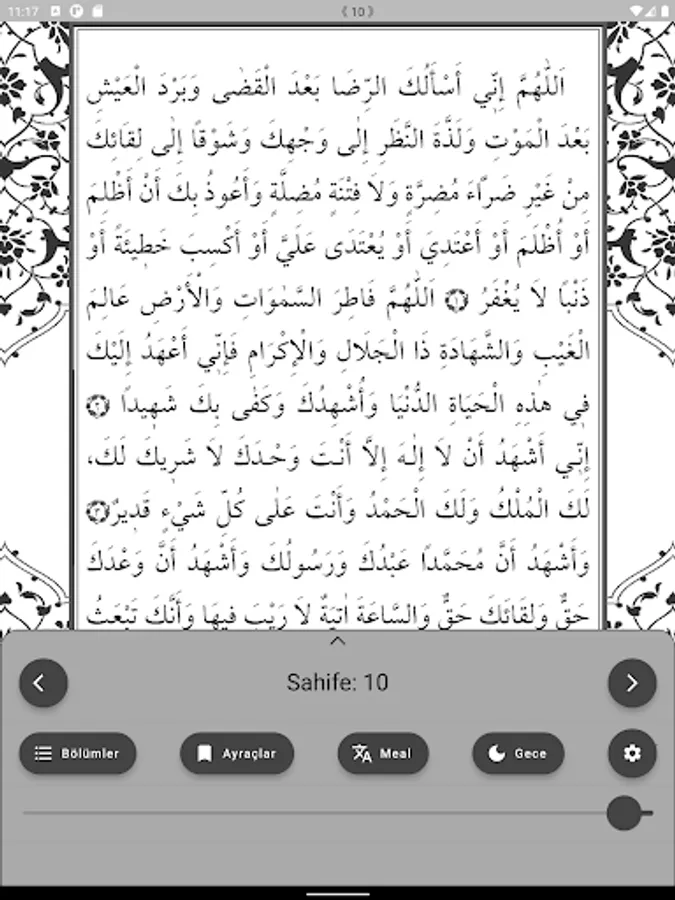 11:17
《 10 》
اَللّٰهُمَّ إِنِّي أَسْأَلُكَ الرِّضَا بَعْدَ الْقَضٰى وَبَرْدَ الْعَيْشِ
بَعْدَ الْمَوْتِ وَلَذَّةَ النَّظَرِ إِلٰى وَجْهِكَ وَشَوْقًا إِلٰى لِقَائِكَ
مِنْ غَيْرِ ضَرَّاءَ مُضِرَّةٍ وَلَا فِتْنَةٍ مُضِلَّةٍ وَأَعُوذُ بِكَ أَنْ أَظْلِمَ
أَوْ أُظْلَمَ أَوْ أَعْتَدِيَ أَوْ يُعْتَدٰى عَلَيَّ أَوْ أَكْسِبَ خَطِيئَةً أَوْ
ذَنْبًا لَا يُغْفَرُ ۝١ اَللّٰهُمَّ فَاطِرَ السَّمٰوَاتِ وَالْأَرْضِ عَالِمَ
الْغَيْبِ وَالشَّهَادَةِ ذَا الْجَلَالِ وَالْإِكْرَامِ فَإِنِّي أَعْهَدُ إِلَيْكَ
فِي هٰذِهِ الْحَيَاةِ الدُّنْيَا وَأُشْهِدُكَ وَكَفٰى بِكَ شَهِيدًا ۝٢
إِنِّي أَشْهَدُ أَنْ لَا إِلٰهَ إِلَّا أَنْتَ وَحْدَكَ لَا شَرِيكَ لَكَ،
لَكَ الْمُلْكُ وَلَكَ الْحَمْدُ وَأَنْتَ عَلٰى كُلِّ شَيْءٍ قَدِيرٌ ۝٣
وَأَشْهَدُ أَنَّ مُحَمَّدًا عَبْدُكَ وَرَسُولُكَ وَأَشْهَدُ أَنَّ وَعْدَكَ
حَقٌّ وَلِقَائَكَ حَقٌّ وَالسَّاعَةَ اٰتِيَةٌ لَا رَيْبَ فِيهَا وَأَنَّكَ تَبْعَثُ
Sahife: 10
Bölümler
Ayraçlar
Meal
Gece